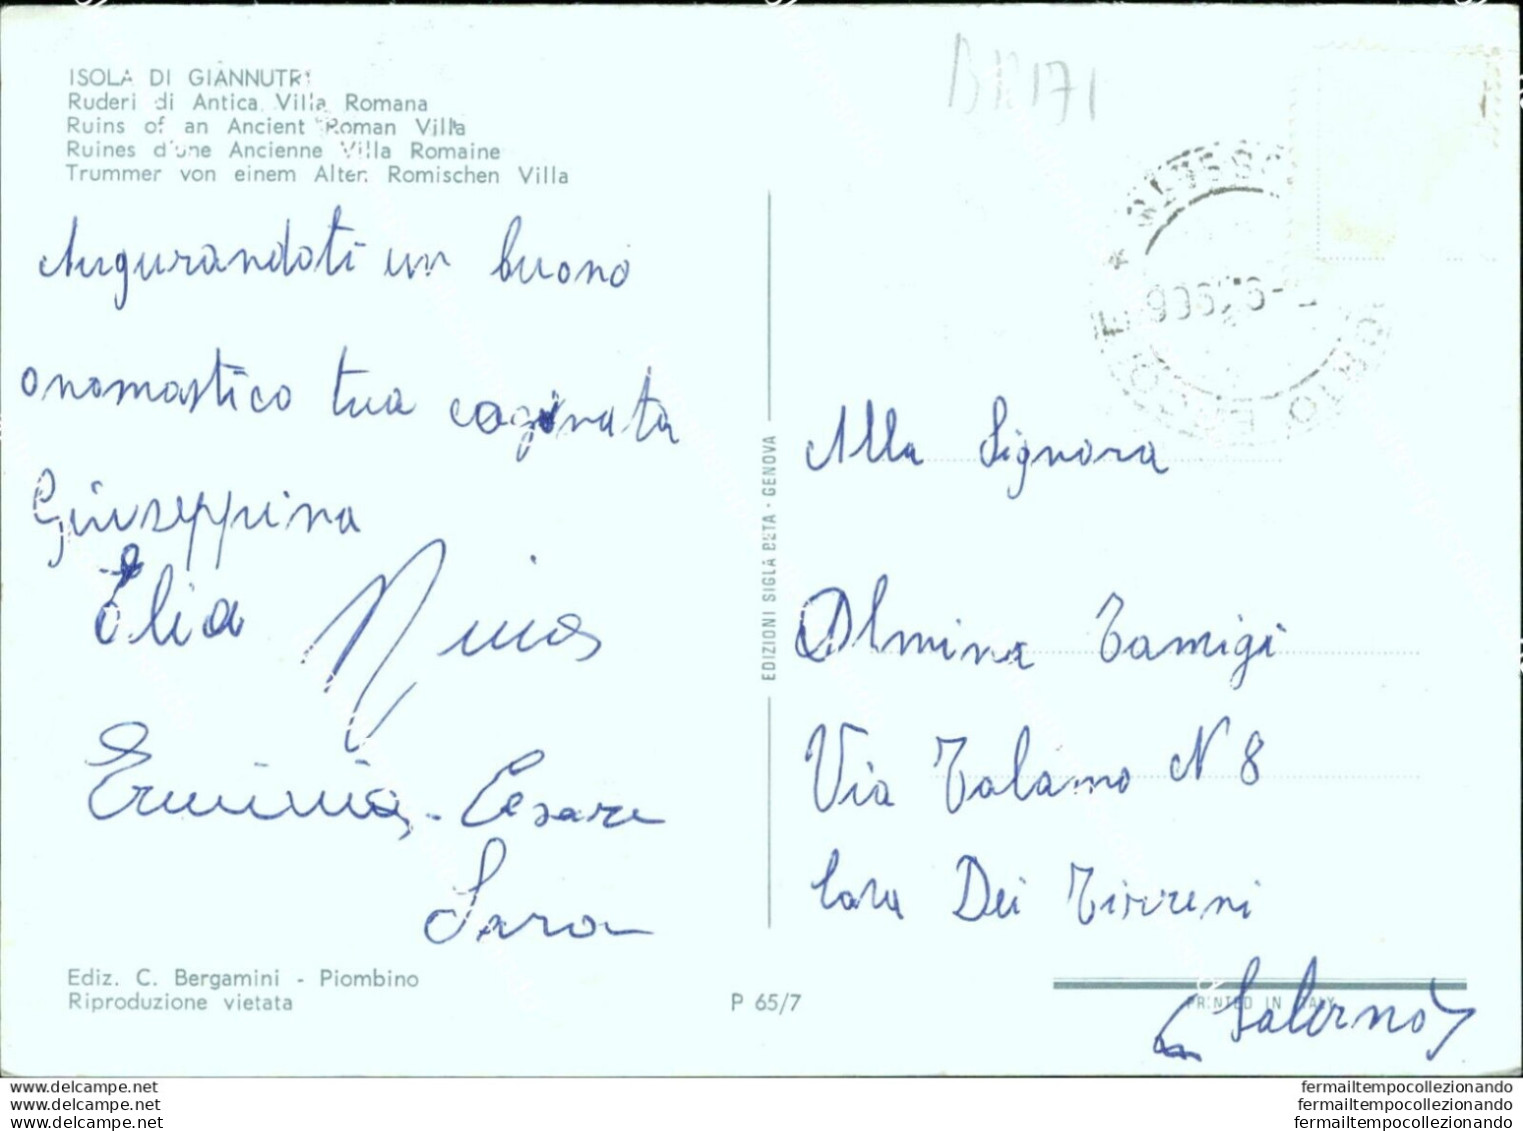 BR171
ISOLA DI GIANNUTRI
Ruderi di Antica Villa Romana
Ruins of an Ancient Roman Villa
Ruines d'une Ancienne Villa Romaine
Trummer von einem Alten Romischen Villa
Augurandoti un buono
onomastico tua coginata
Giuseppina
Elia
Erminia - Cesare
Sara
Ediz. C. Bergamini - Piombino
Riproduzione vietata
P 65/7
EDIZIONI SIGLA BETA - GENOVA
Alla Signora
Olmina Tamigi
Via Talamo N 8
Cava Dei Tirreni
(Salerno)
PRINTED IN ITALY
delcampe.net
delcampe.net
delcampe.net
fermailtempocollezionando
fermailtempocollezionando
fermailtempocollezionando